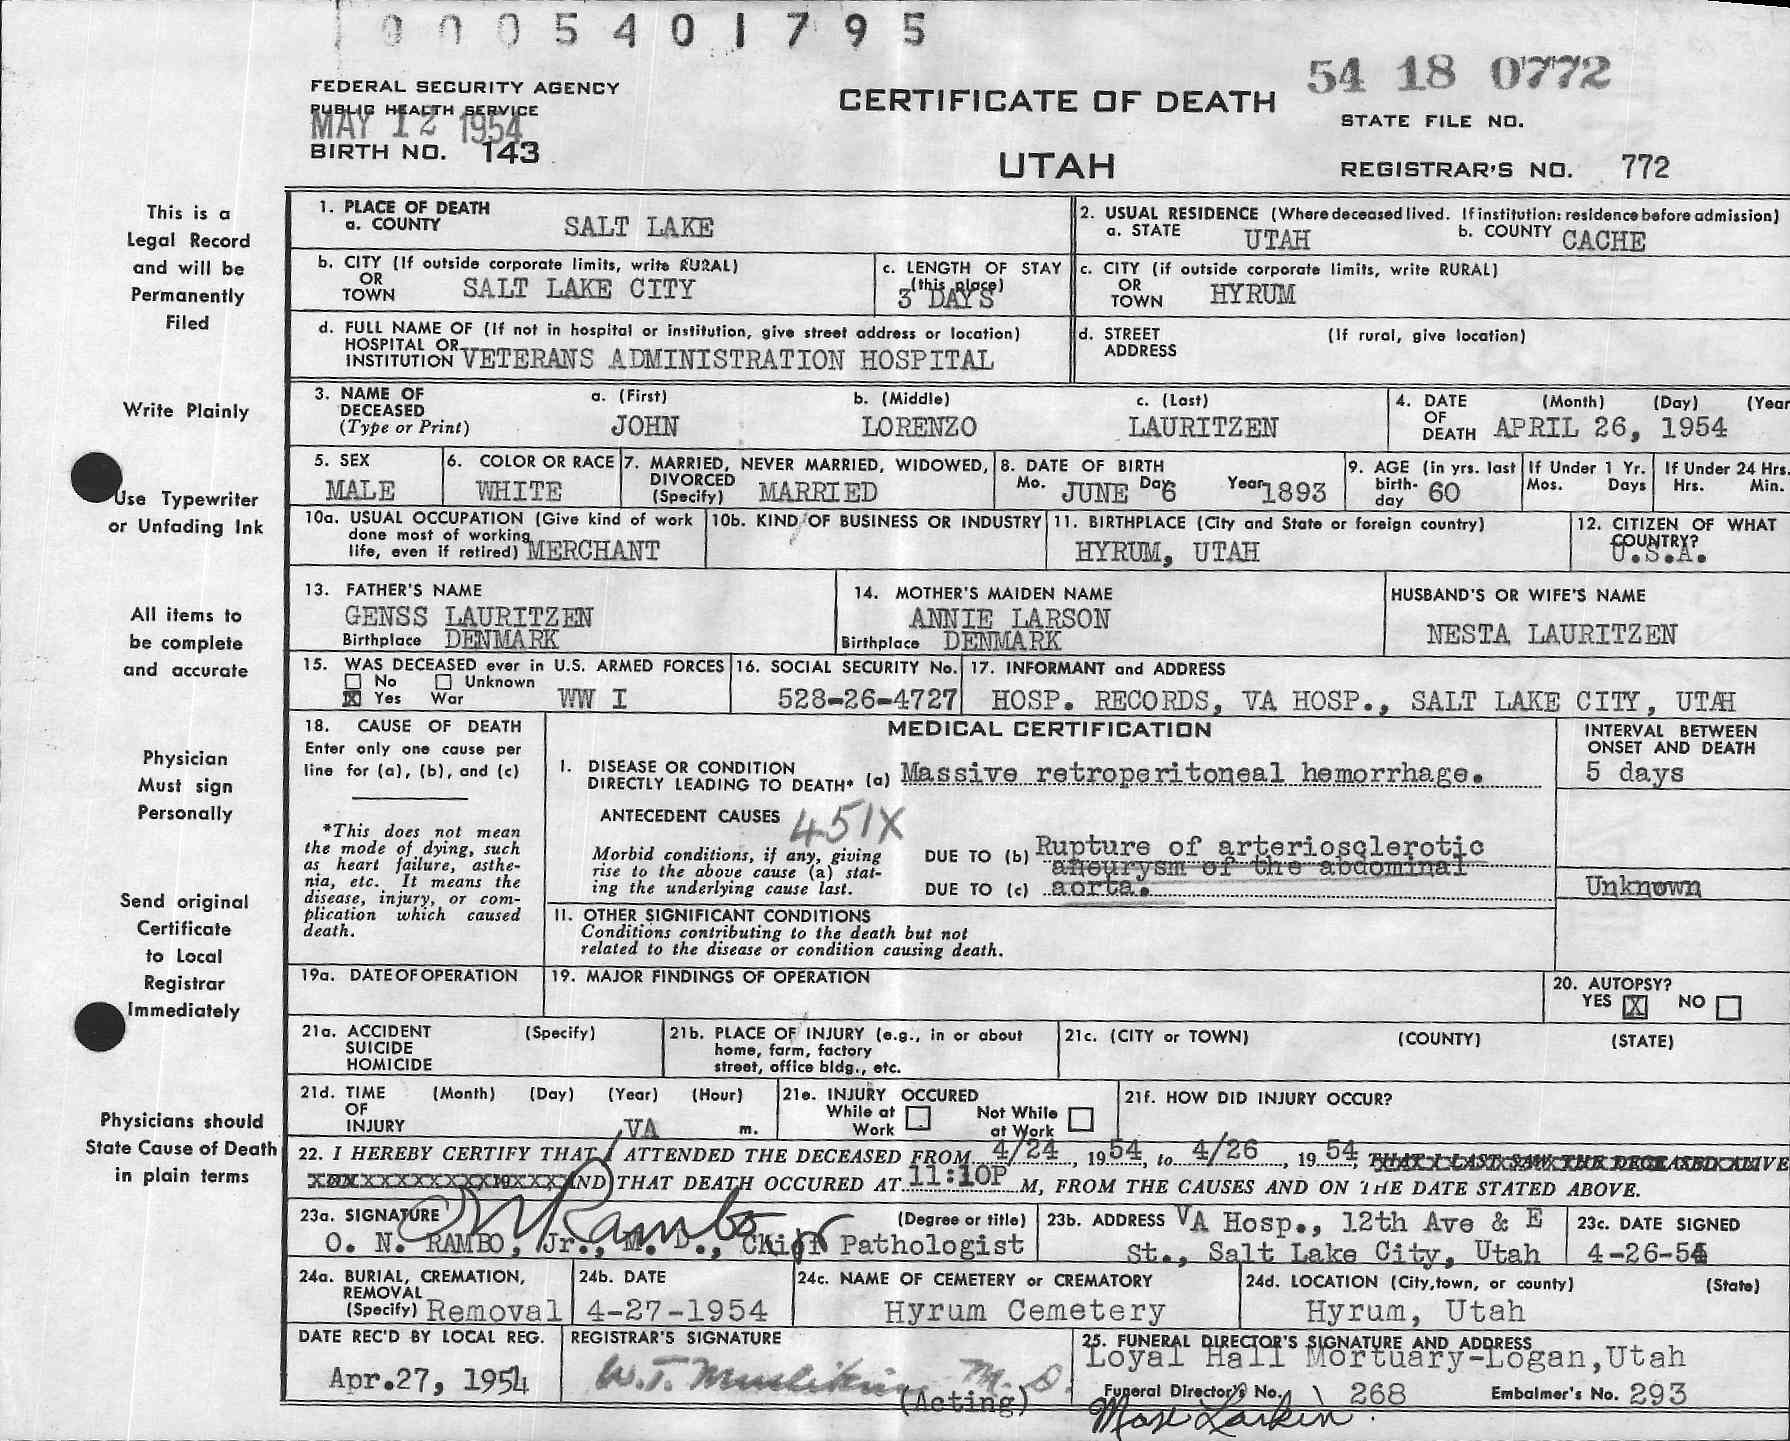 0005401795
54 18 0772
FEDERAL SECURITY AGENCY
PUBLIC HEALTH SERVICE
MAY 12 1954
BIRTH NO. 143
CERTIFICATE OF DEATH
UTAH
STATE FILE NO.
REGISTRAR'S NO. 772
This is a
Legal Record
and will be
Permanently
Filed
Write Plainly
Use Typewriter
or Unfading Ink
All items to
be complete
and accurate
Physician
Must sign
Personally
Send original
Certificate
to Local
Registrar
Immediately
Physicians should
State Cause of Death
in plain terms
1. PLACE OF DEATH
a. COUNTY SALT LAKE
2. USUAL RESIDENCE (Where deceased lived. If institution: residence before admission)
a. STATE UTAH b. COUNTY CACHE
b. CITY (If outside corporate limits, write RURAL)
OR
TOWN SALT LAKE CITY
c. LENGTH OF STAY
(this place)
3 DAYS
c. CITY (if outside corporate limits, write RURAL)
OR
TOWN HYRUM
d. FULL NAME OF (If not in hospital or institution, give street address or location)
HOSPITAL OR
INSTITUTION VETERANS ADMINISTRATION HOSPITAL
d. STREET (If rural, give location)
ADDRESS
3. NAME OF a. (First) b. (Middle) c. (Last)
DECEASED
(Type or Print) JOHN LORENZO LAURITZEN
4. DATE (Month) (Day) (Year
OF
DEATH APRIL 26, 1954
5. SEX
MALE
6. COLOR OR RACE
WHITE
7. MARRIED, NEVER MARRIED, WIDOWED,
DIVORCED
(Specify) MARRIED
8. DATE OF BIRTH
Mo. JUNE Day 6 Year 1893
9. AGE (in yrs. last
birth-
day 60
If Under 1 Yr.
Mos. Days
If Under 24 Hrs.
Hrs. Min.
10a. USUAL OCCUPATION (Give kind of work
done most of working
life, even if retired) MERCHANT
10b. KIND OF BUSINESS OR INDUSTRY
11. BIRTHPLACE (City and State or foreign country)
HYRUM, UTAH
12. CITIZEN OF WHAT
COUNTRY?
U.S.A.
13. FATHER'S NAME
GENSS LAURITZEN
Birthplace DENMARK
14. MOTHER'S MAIDEN NAME
ANNIE LARSON
Birthplace DENMARK
HUSBAND'S OR WIFE'S NAME
NESTA LAURITZEN
15. WAS DECEASED ever in U.S. ARMED FORCES
No Unknown
X Yes War WW I
16. SOCIAL SECURITY No.
528-26-4727
17. INFORMANT and ADDRESS
HOSP. RECORDS, VA HOSP., SALT LAKE CITY, UTAH
18. CAUSE OF DEATH
Enter only one cause per
line for (a), (b), and (c)
*This does not mean
the mode of dying, such
as heart failure, asthe-
nia, etc. It means the
disease, injury, or com-
plication which caused
death.
MEDICAL CERTIFICATION
INTERVAL BETWEEN
ONSET AND DEATH
I. DISEASE OR CONDITION
DIRECTLY LEADING TO DEATH* (a) Massive retroperitoneal hemorrhage. 5 days
ANTECEDENT CAUSES 451X
Morbid conditions, if any, giving
rise to the above cause (a) stat-
ing the underlying cause last.
DUE TO (b) Rupture of arteriosclerotic
aneurysm of the abdominal
DUE TO (c) aorta. Unknown
II. OTHER SIGNIFICANT CONDITIONS
Conditions contributing to the death but not
related to the disease or condition causing death.
19a. DATE OF OPERATION
19. MAJOR FINDINGS OF OPERATION
20. AUTOPSY?
YES X NO
21a. ACCIDENT (Specify)
SUICIDE
HOMICIDE
21b. PLACE OF INJURY (e.g., in or about
home, farm, factory
street, office bldg., etc.
21c. (CITY or TOWN) (COUNTY) (STATE)
21d. TIME (Month) (Day) (Year) (Hour)
OF
INJURY m.
21e. INJURY OCCURED
While at Work Not While at Work
21f. HOW DID INJURY OCCUR?
VA
22. I HEREBY CERTIFY THAT I ATTENDED THE DECEASED FROM 4/24, 1954, to 4/26, 1954, THAT I LAST SAW THE DECEASED ALIVE
AND THAT DEATH OCCURED AT 11:10P M, FROM THE CAUSES AND ON THE DATE STATED ABOVE.
23a. SIGNATURE (Degree or title)
O N Rambo Jr
O. N. RAMBO, Jr., M. D., Chief Pathologist
23b. ADDRESS VA Hosp., 12th Ave & E
St., Salt Lake City, Utah
23c. DATE SIGNED
4-26-54
24a. BURIAL, CREMATION,
REMOVAL
(Specify) Removal
24b. DATE
4-27-1954
24c. NAME OF CEMETERY or CREMATORY
Hyrum Cemetery
24d. LOCATION (City, town, or county) (State)
Hyrum, Utah
DATE REC'D BY LOCAL REG.
Apr.27, 1954
REGISTRAR'S SIGNATURE
W.T. M. D.
(Acting)
25. FUNERAL DIRECTOR'S SIGNATURE AND ADDRESS
Loyal Hall Mortuary-Logan, Utah
Funeral Director's No. 268 Embalmer's No. 293
Max Larkin